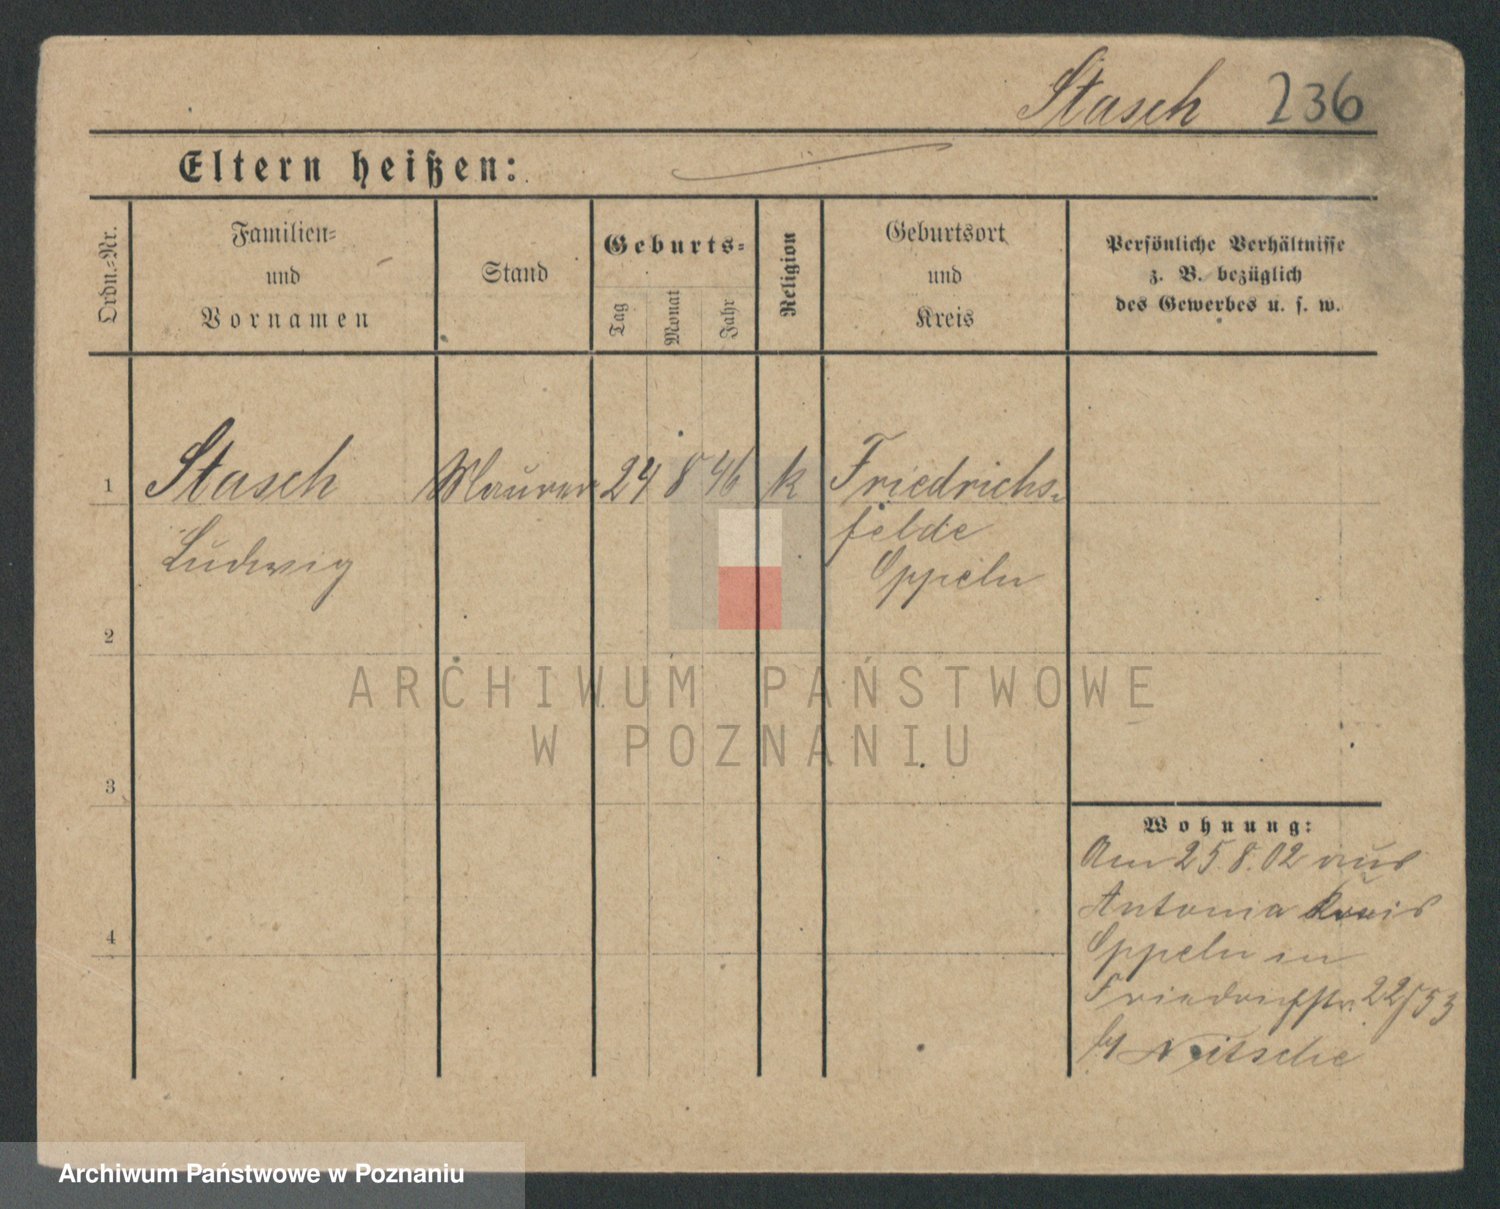 Stasch 236
Eltern heißen:
Ordn.-Nr.
Familien-
und
Vornamen
Stand
Geburts-
Tag
Monat
Jahr
Religion
Geburtsort
und
Kreis
Persönliche Verhältnisse
z. B. bezüglich
des Gewerbes u. s. w.
1 Stasch Maurer 24 8 46 k Friedrichs-
Ludwig felde
Oppeln
2
3
4
Wohnung:
Am 25.8.02 aus
Antonia Kreis
Oppeln in
Friedrichstr. 22/53
Nitsche
ARCHIWUM PAŃSTWOWE
W POZNANIU
Archiwum Państwowe w Poznaniu